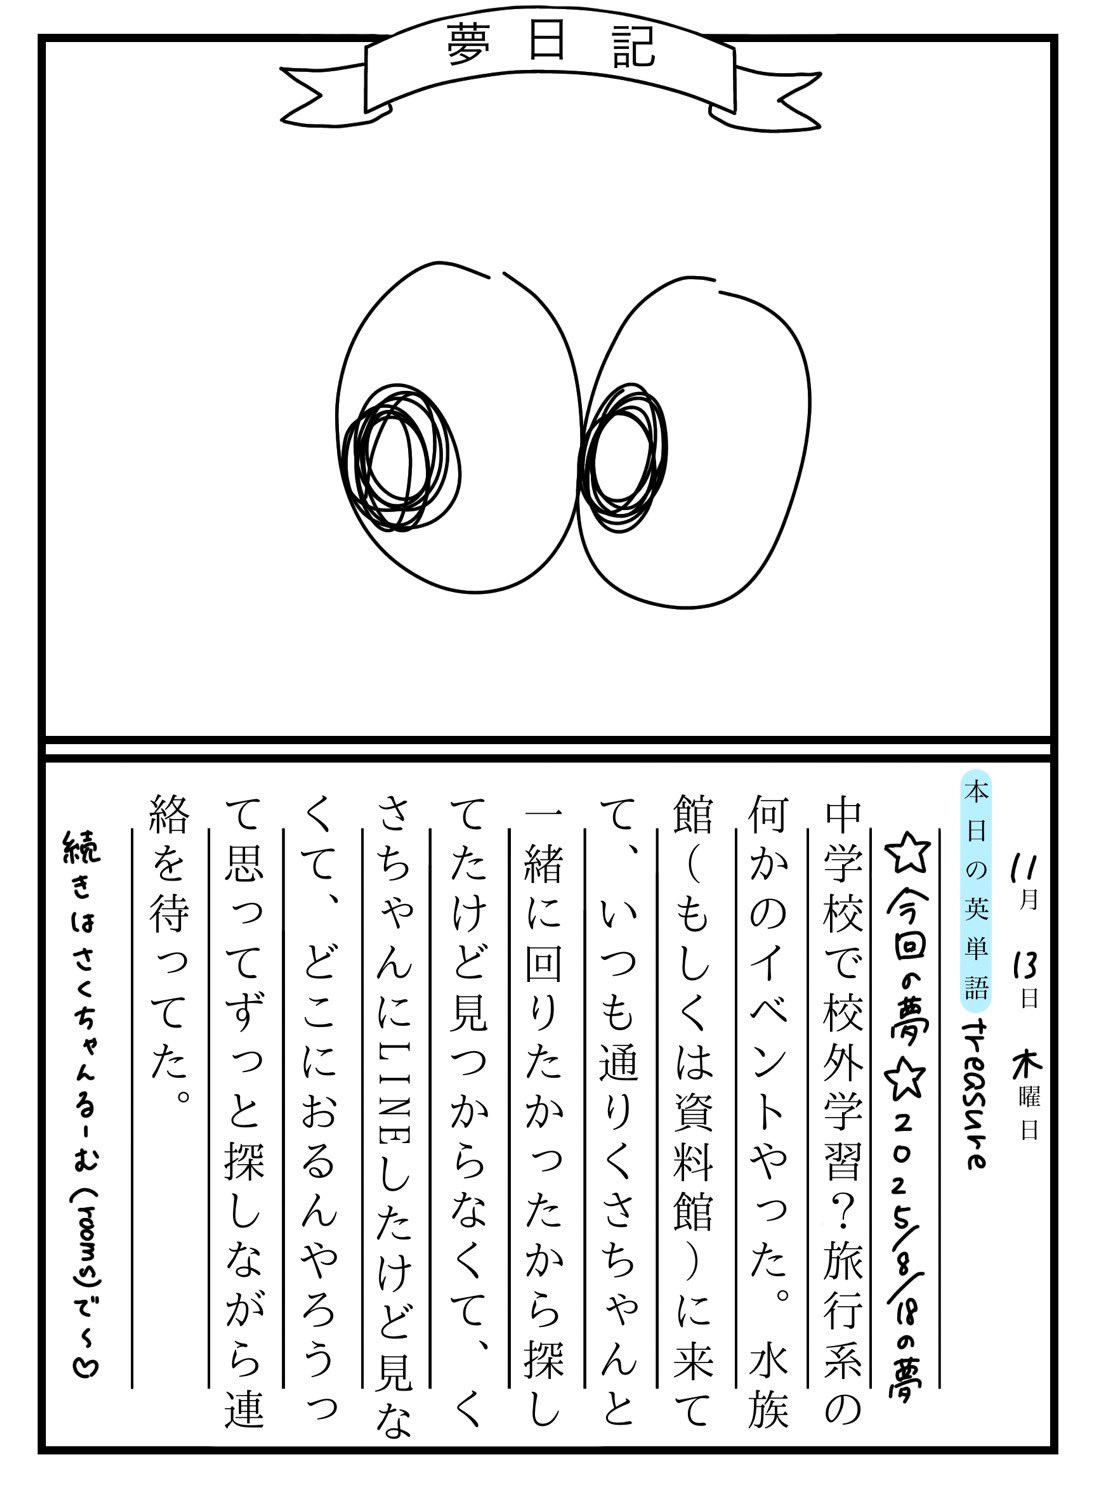 夢日記
11月 13日 木曜日
本日の英単語 treasure
☆今回の夢☆2025/8/18の夢
中学校で校外学習？旅行系の
何かのイベントやった。水族
館（もしくは資料館）に来て
て、いつも通りくさちゃんと
一緒に回りたかったから探し
てたけど見つからなくて、く
さちゃんにLINEしたけど見な
くて、どこにおるんやろうっ
て思ってずっと探しながら連
絡を待ってた。
続きはさくちゃんるーむ(rooms)で〜♡